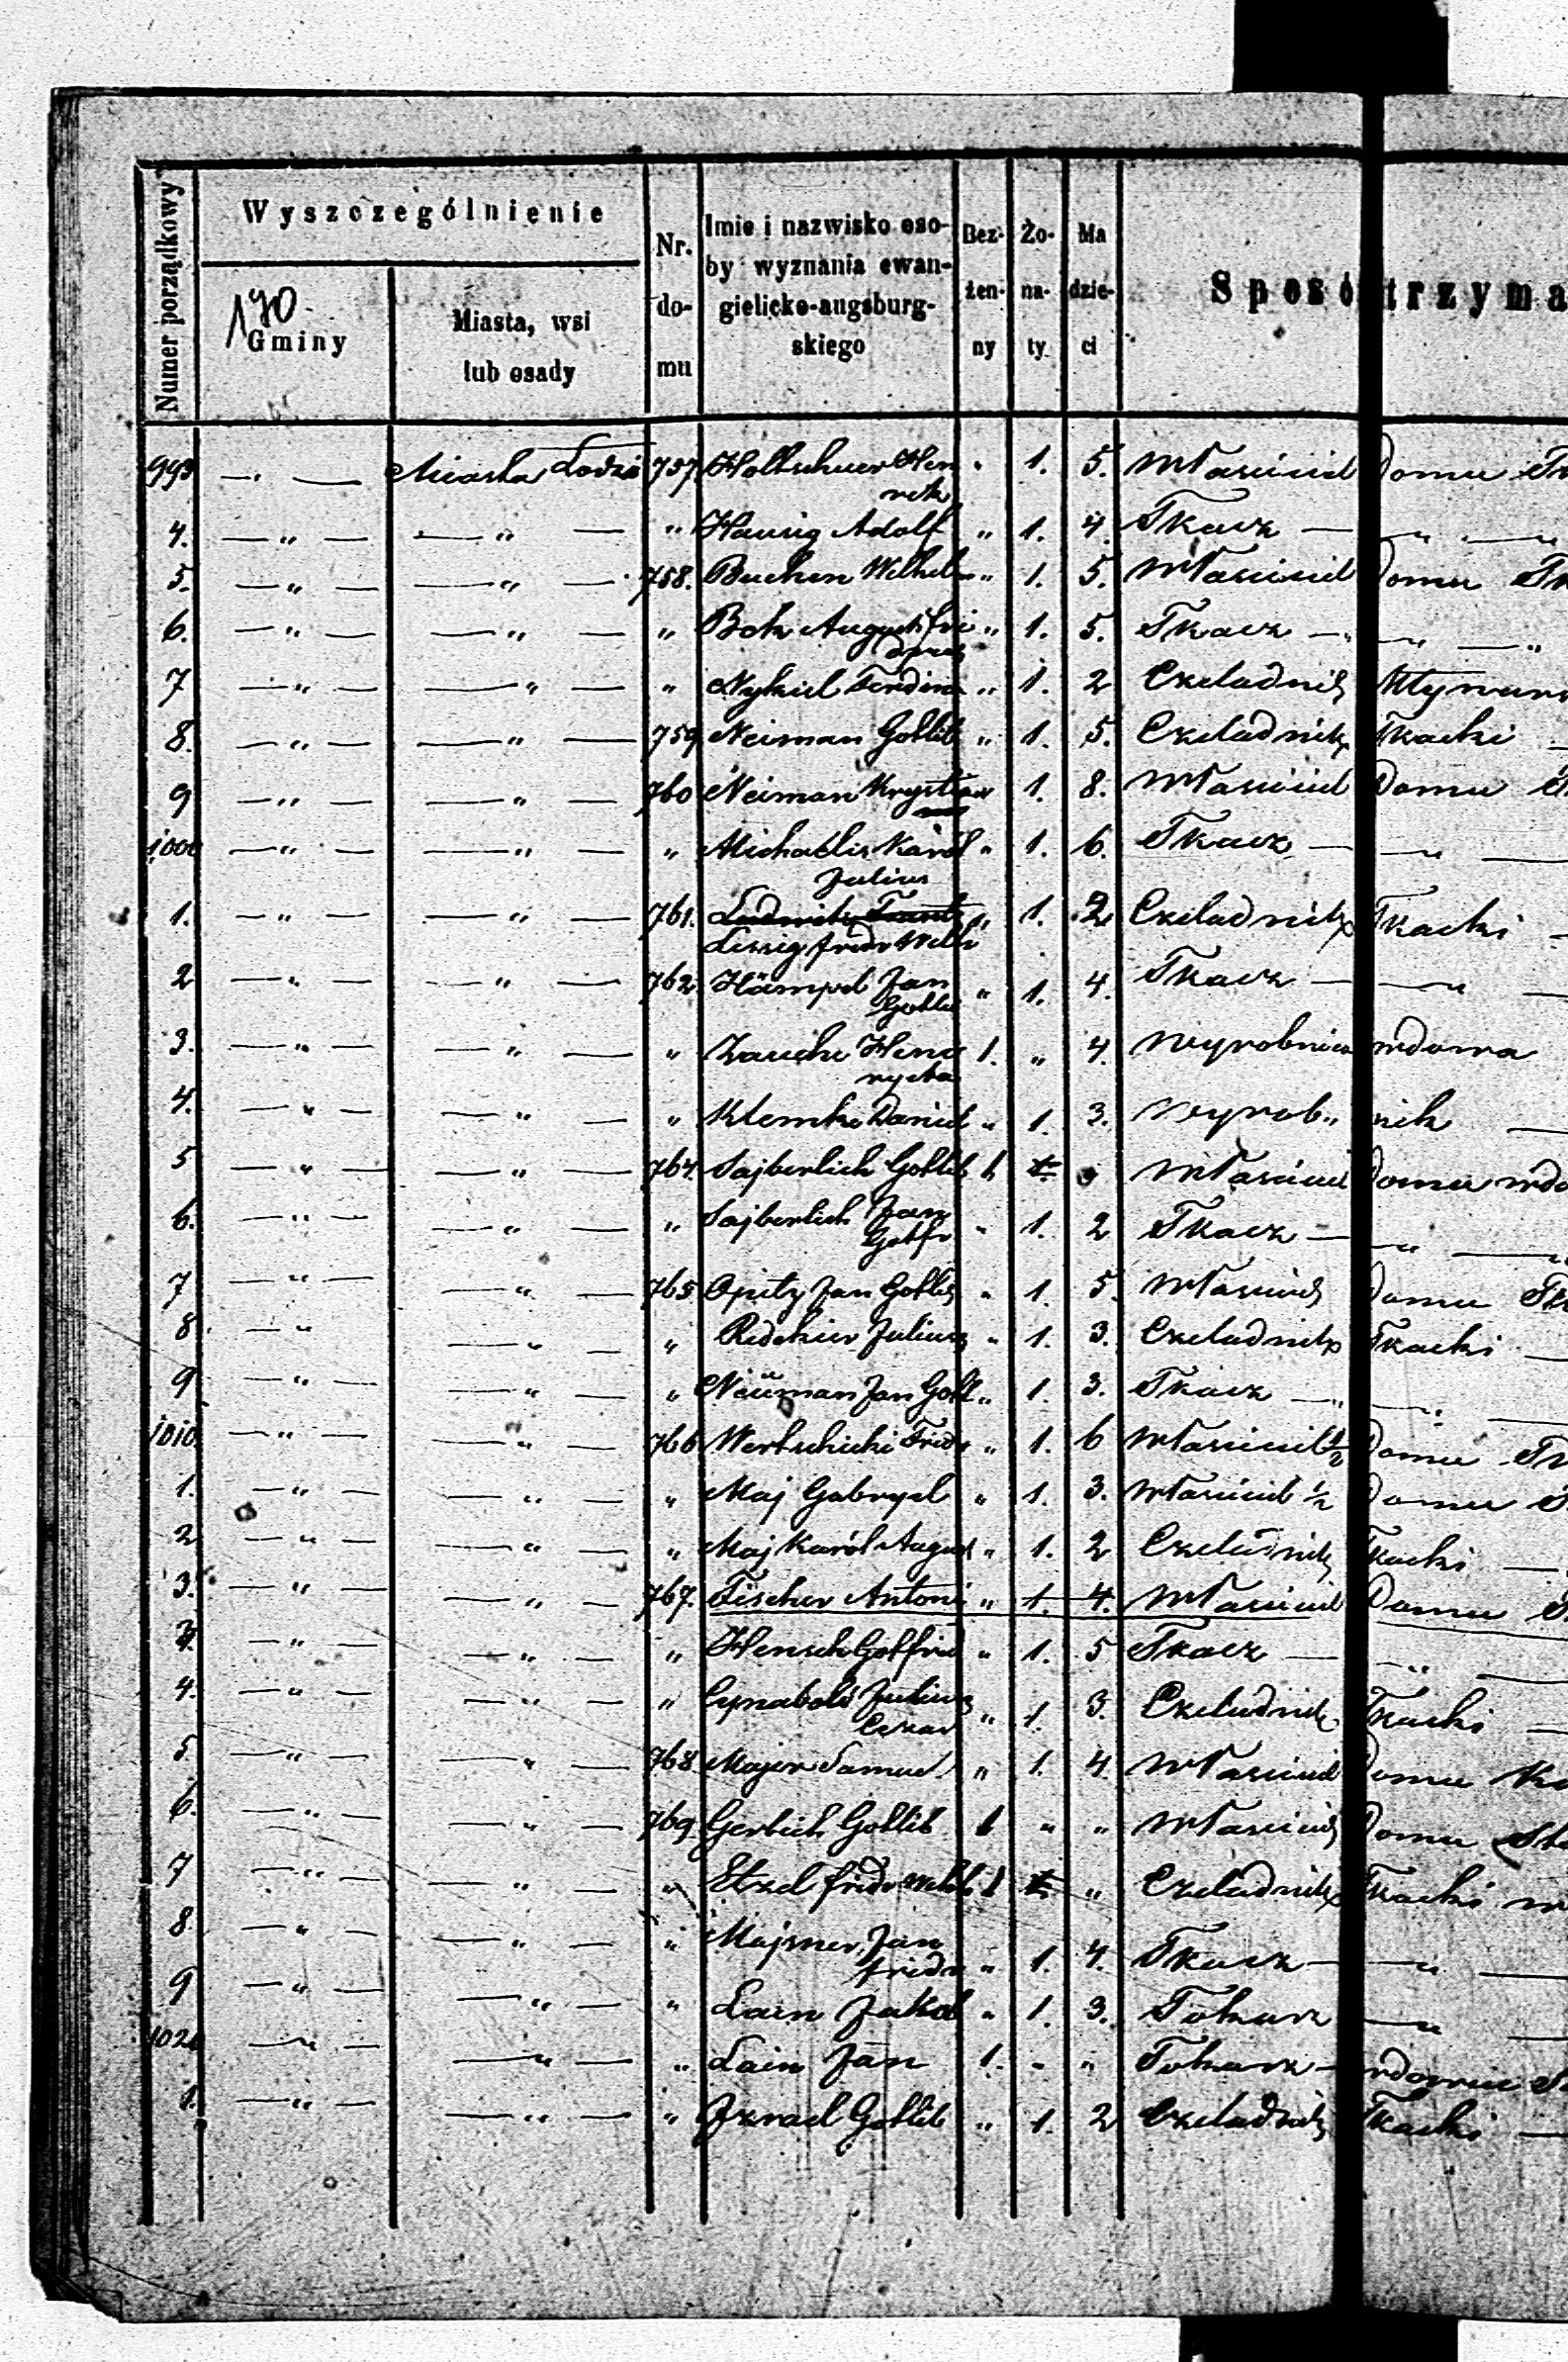 Numer porządkowy
Wyszczególnienie
190
Gminy
Miasta, wsi
lub osady
Nr.
do-
mu
Imie i nazwisko oso-
by wyznania ewan-
gielicko-augsburg-
skiego
Bez-
żen-
ny
Żo-
na-
ty
Ma
dzie-
ci
Sposó trzyma
993 — " — Miasta Łodzi 757. Holtschuer Hen " 1. 5. Właściciel Domu
ryk
4. — " — — " — " Hausig Adolf " 1. 4. Tkacz — — " —
5. — " — — " — 758. Buchen Wilhelm " 1. 5. Właściciel Domu
6. — " — — " — " Bok August fri " 1. 5. Tkacz — " — — "
7 — " — — " — " Nykiel Ferdina " 1. 2 Czeladnik Młynars
8. — " — — " — 759 Neiman Gottlib " 1. 5. Czeladnik Tkacki —
9 — " — — " — 760 Neiman Krystian 1. 8. Właściciel Domu
1000 — " — — " — " Michaelis Karól " 1. 6. Tkacz — — " —
Julius
1. — " — — " — 761. Ludwik " 1. 2 Czeladnik Tkacki —
Lessig fridr Wilh
2 — " — — " — 762 Hämpel Jan " 1. 4. Tkacz — — " —
Gottli
3. — " — — " — " Zauche Hene 1. " 4. Wyrobnica wdowa
ryka
4. — " — — " — " Klemke Daniel " 1. 3. Wyrob " nik —
5 — " — — " — 764. Sajberlich Gottlib 1. 1. Właściciel Domu wdo
6. — " — — " — " Sajberlich Jan " 1. 2 Tkacz — — " —
Gotfr
7 — " — — " — 765 Opitz Jan Gottlib " 1. 5. Właściciel Domu Tk
8 — " — " — " Redekier Juliusz " 1. 3. Czeladnik Tkacki —
9 — " — — " — " Neüman Jan Gotl " 1. 3. Tkacz — " — " —
1010. — " — — " — 766 Wertschicki Fridr " 1. 6 Właściciel ½ Domu
1. — " — — " — " Maj Gabryel " 1. 3. Właściciel ½ Domu
2 — " — — " — " Maj Karól August " 1. 2 Czeladnik Tkacki —
3. — " — — " — 767. Fischer Antoni " 1. 4. Właściciel Domu
3. — " — — " — " Hensch Gotfrid " 1. 5 Tkacz — — " —
4. — " — — " — " Juliusz " 1. 3. Czeladnik Tkacki —
Cezar
5. — " — " — 768 Majer Samuel " 1. 4. Właściciel Domu
6. — " — — " — 769 Gerlich Gottlib 1 " " Właściciel Domu
7 — " — — " — " Etzel fridr Wilh 1 1. " Czeladnik Tkacki
8 — " — — " — " Majsner Jan " 1. 4. Tkacz — — " —
fridr
9 — " — — " — " Lain Jakob " 1. 3. Tokarz — " —
1020 — " — — " — " Lain Jan 1. " " Tokarz —
1. — " — — " — " Izrael Gottlib " 1. 2 Czeladnik Tkacki —